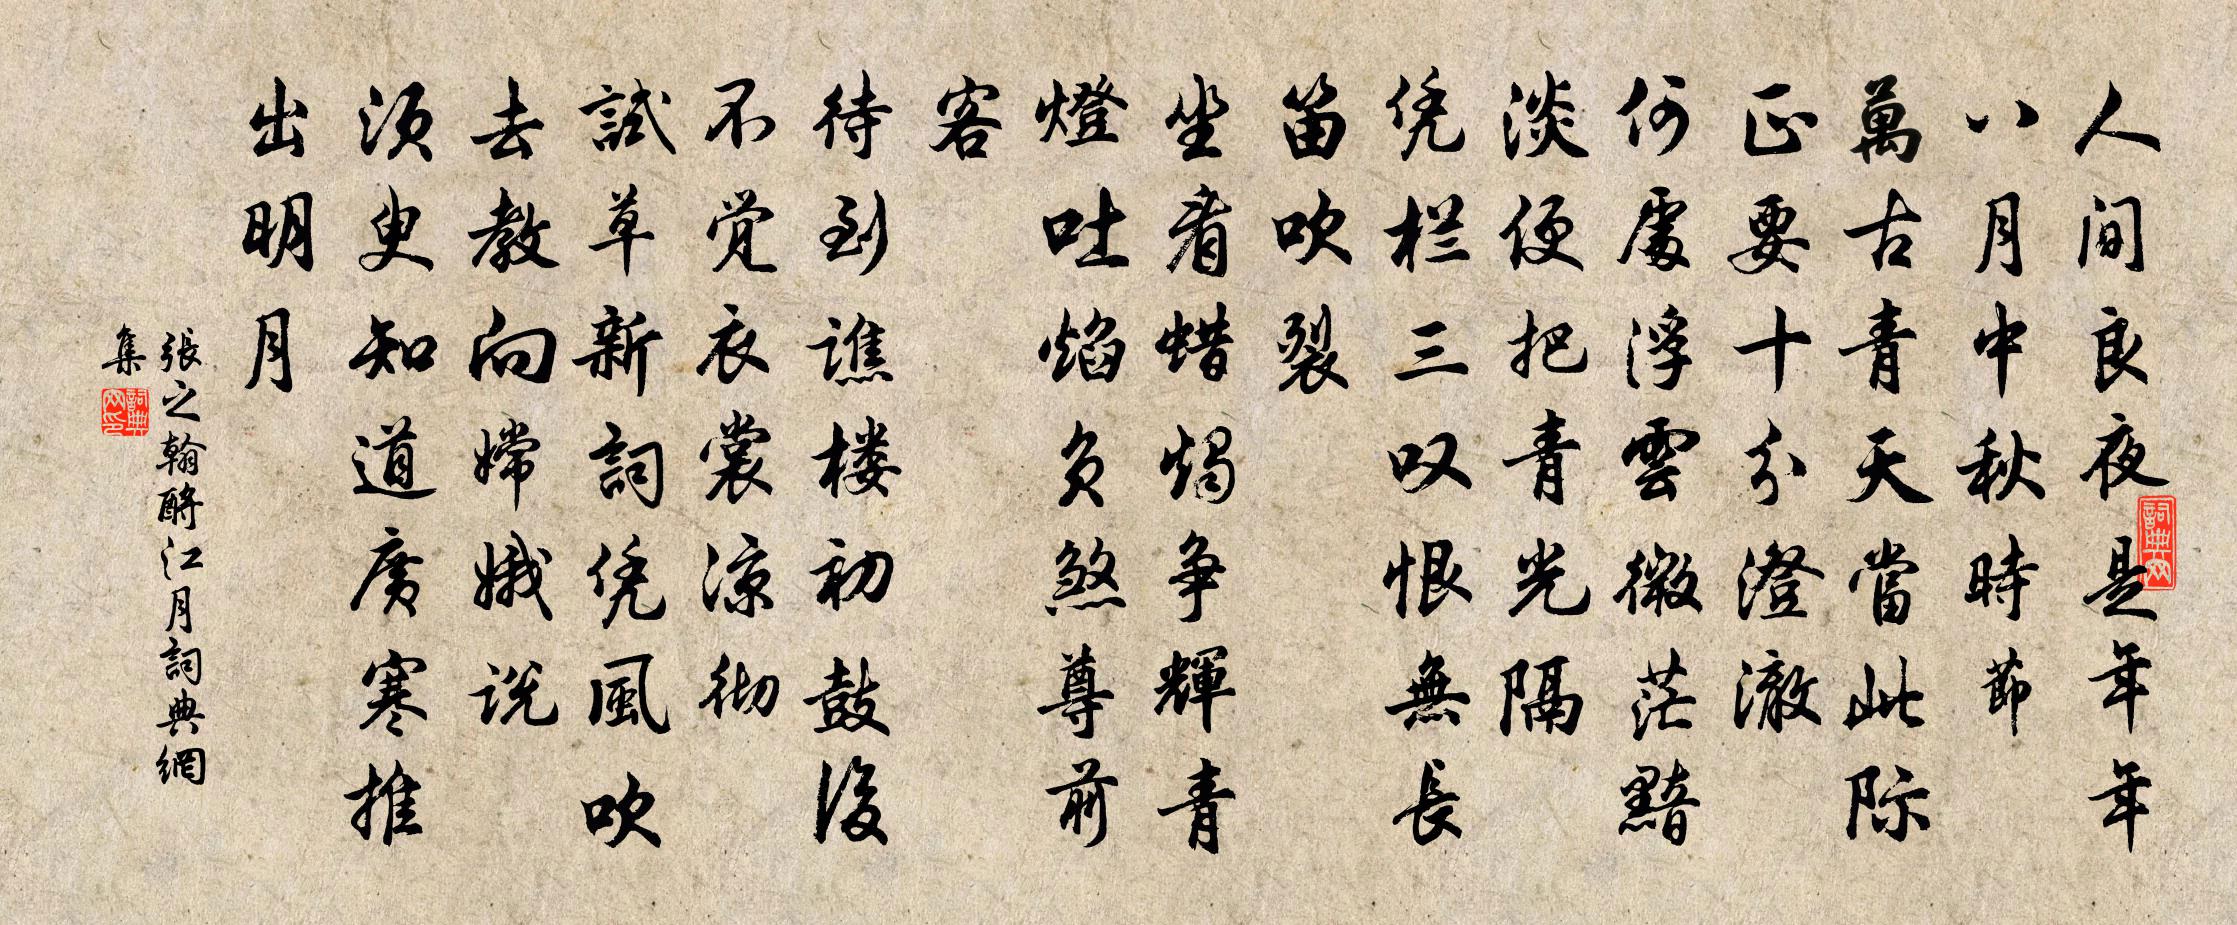 人间良夜是年年
八月中秋時節
萬古青天當此际
正要十分澄澈
何處浮雲微茫黯
淡便把青光隔
凭栏三叹恨無長
笛吹裂
坐看蜡燭争輝青
燈吐焰負煞尊前
客
待到譙楼初鼓後
不覚衣裳凉彻
試草新詞凭風吹
去教向嫦娥说
须臾知道广寒推
出明月
張之翰酹江月詞典網
集
詞典网
詞典网印